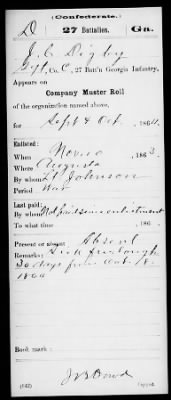 (Confederate.)
D 27 Battalion. Ga.
J. C. Digby
Co. C, 27 Batt'n Georgia Infantry.
Appears on
Company Muster Roll
of the organization named above,
for Sept & Oct, 1864.
Enlisted:
When Nov 10, 1863.
Where Augusta
By whom Lt Johnson
Period War
Last paid:
By whom Not paid since enlistment
To what time , 186
Present or absent Absent
Remarks: Sick furlough
30 days from Oct. 18
1864
Book mark:
(642) Copyist.